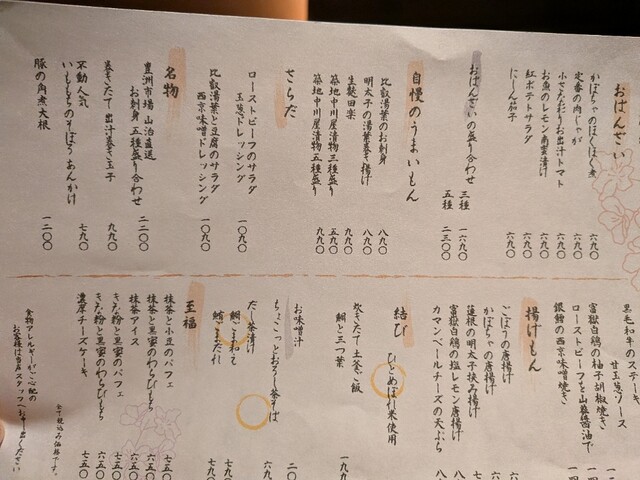 おばんざい
かぼちゃのほくほく煮 六九〇
定番の肉じゃが 六九〇
小さなおりお出汁トマト 六九〇
お魚のレモン南蛮漬け 六九〇
紅ポテトサラダ 六九〇
にしん茄子 六九〇
おばんざいの盛り合わせ 三種 一六九〇
五種 二三〇〇
自慢のうまいもん
比叡湯葉のお刺身 八九〇
明太子の湯葉巻き揚げ 八九〇
生麩田楽 九九〇
築地中川屋漬物三種盛り 五九〇
築地中川屋漬物五種盛り 九九〇
さらだ
ローストビーフのサラダ
玉葱ドレッシング 一〇九〇
比叡湯葉と豆腐のサラダ
西京味噌ドレッシング 一〇九〇
名物
豊洲市場 山治直送
お刺身 五種盛り合わせ 二二〇〇
巻きたて 出汁巻き玉子 九九〇
不動人気
いももちのそぼろあんかけ 七九〇
豚の角煮大根 一二〇〇
黒毛和牛のステーキ
甘玉葱ソース
富嶽白鶏の柚子胡椒焼き
ローストビーフと山葵醤油で
銀鱈の西京味噌焼き
揚げもん
ごぼうの唐揚げ
かぼちゃの唐揚げ
蓮根の明太子挟み揚げ
富嶽白鶏の塩レモン唐揚げ
カマンベールチーズの天ぷら
結び ひとめぼれ米使用
炊きたて 土釜ご飯
鯛と三つ葉
お味噌汁
ちょこっとおろし茶そば
だし茶漬け
鯛ごま和え
鮪ごまだれ
至福
抹茶と小豆のパフェ 七五〇
抹茶と黒蜜のわらびもち 六五〇
抹茶アイス 六五〇
きな粉と黒蜜のパフェ 七五〇
きな粉と黒蜜のわらびもち 六五〇
濃厚チーズケーキ 七五〇
全て税込み価格です。
食物アレルギーがご心配の
お客様は当店スタッフへお申し出ください